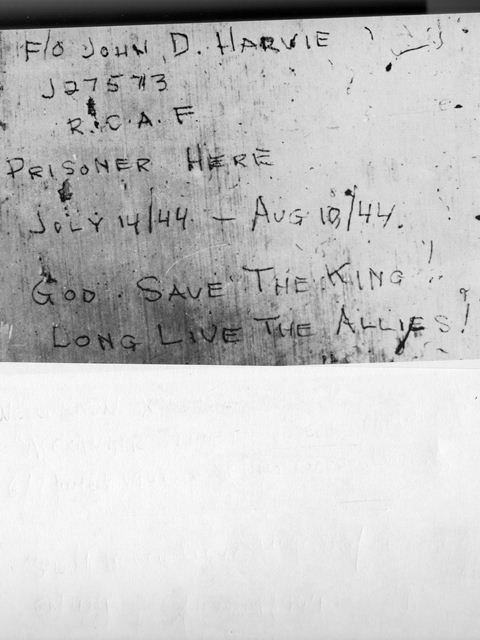 F/O JOHN D. HARVIE
J27573
R.C.A.F
PRISONER HERE
JULY 14/44 - AUG 10/44.
GOD SAVE THE KING!
LONG LIVE THE ALLIES!